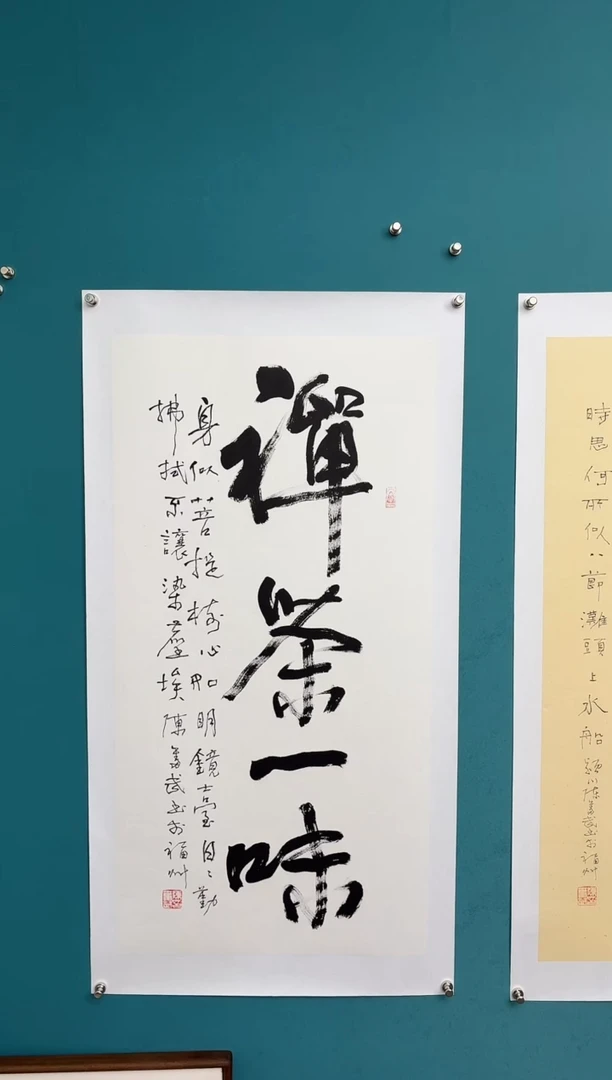 禪茶一味
身似菩提樹心如明鏡臺日日勤
拂拭不讓染塵埃陳善武書於福州
時思何所似八節灘頭上水船穎川陳善武書於福州